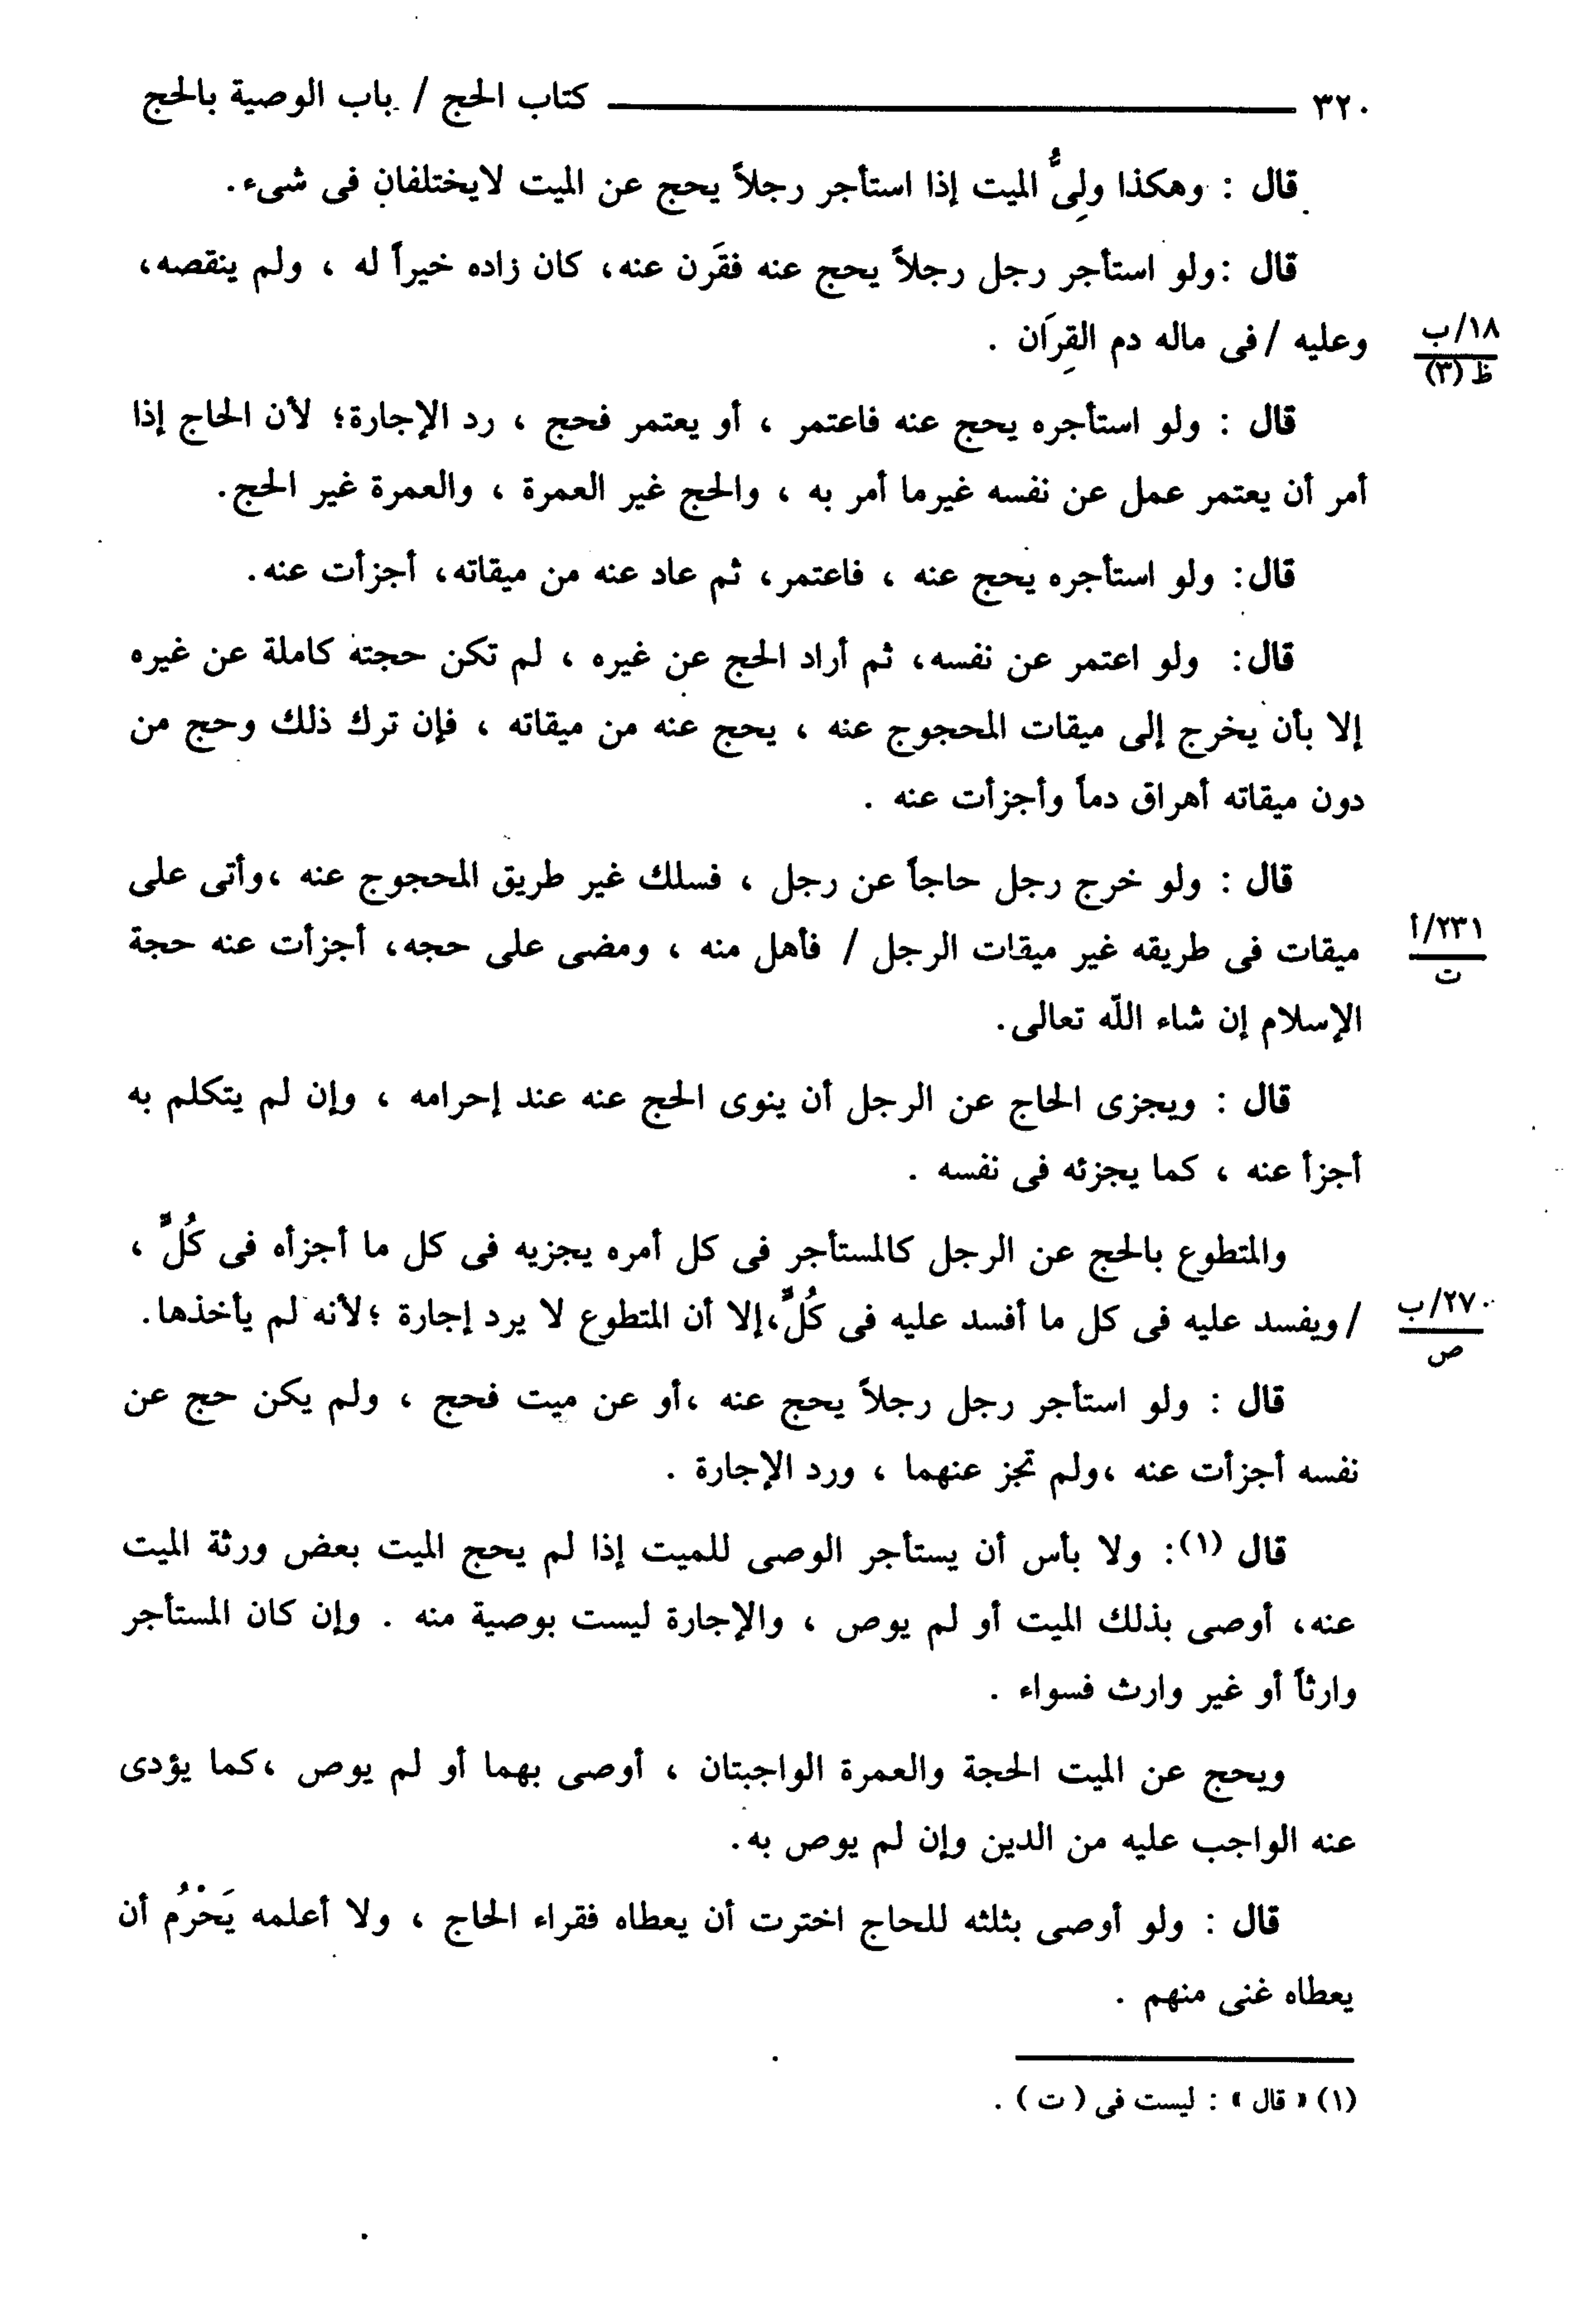 ٣٢٠ كتاب الحج / باب الوصية بالحج
قال : وهكذا ولِىُّ الميت إذا استأجر رجلاً يحج عن الميت لايختلفان فى شىء.
قال :ولو استأجر رجل رجلاً يحج عنه فقَرن عنه، كان زاده خيراً له ، ولم ينقصه،
وعليه / فى ماله دم القِرَان .
١٨/ب
ظ (٣)
قال : ولو استأجره يحج عنه فاعتمر ، أو يعتمر فحج ، رد الإجارة؛ لأن الحاج إذا
أمر أن يعتمر عمل عن نفسه غيرما أمر به ، والحج غير العمرة ، والعمرة غير الحج.
قال: ولو استأجره يحج عنه ، فاعتمر، ثم عاد عنه من ميقاته، أجزأت عنه.
قال: ولو اعتمر عن نفسه، ثم أراد الحج عن غيره ، لم تكن حجته كاملة عن غيره
إلا بأن يخرج إلى ميقات المحجوج عنه ، يحج عنه من ميقاته ، فإن ترك ذلك وحج من
دون ميقاته أهراق دماً وأجزأت عنه .
قال : ولو خرج رجل حاجاً عن رجل ، فسلك غير طريق المحجوج عنه ،وأتى على
ميقات فى طريقه غير ميقات الرجل / فأهل منه ، ومضى على حجه، أجزأت عنه حجة
٢٣١/أ
ت
الإسلام إن شاء اللّه تعالى.
قال : ويجزى الحاج عن الرجل أن ينوى الحج عنه عند إحرامه ، وإن لم يتكلم به
أجزأ عنه ، كما يجزئه فى نفسه .
والمتطوع بالحج عن الرجل كالمستأجر فى كل أمره يجزيه فى كل ما أجزأه فى كُلٍّ ،
/ ويفسد عليه فى كل ما أفسد عليه فى كُلٍّ،إلا أن المتطوع لا يرد إجارة ؛لأنه لم يأخذها.
٢٧٠/ب
ص
قال : ولو استأجر رجل رجلاً يحج عنه ،أو عن ميت فحج ، ولم يكن حج عن
نفسه أجزأت عنه ،ولم تجز عنهما ، ورد الإجارة .
قال (١): ولا بأس أن يستأجر الوصى للميت إذا لم يحج الميت بعض ورثة الميت
عنه، أوصى بذلك الميت أو لم يوص ، والإجارة ليست بوصية منه . وإن كان المستأجر
وارثاً أو غير وارث فسواء .
ويحج عن الميت الحجة والعمرة الواجبتان ، أوصى بهما أو لم يوص ،كما يؤدى
عنه الواجب عليه من الدين وإن لم يوص به.
قال : ولو أوصى بثلثه للحاج اخترت أن يعطاه فقراء الحاج ، ولا أعلمه يَحْرُم أن
يعطاه غنى منهم .
(١) « قال » : ليست فى ( ت ) .